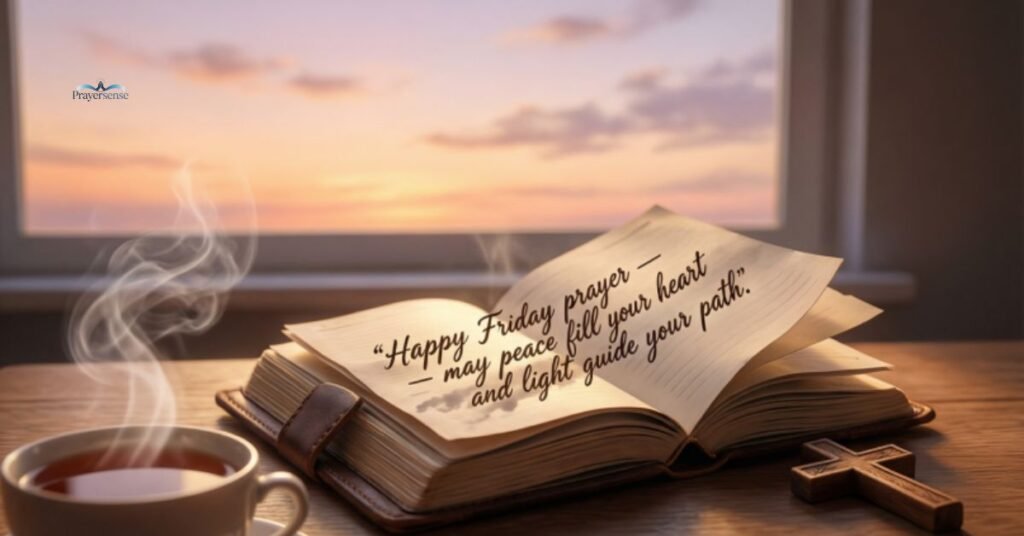 Prayersense
“Happy Friday prayer —
— may peace fill your heart
and light guide your path.”